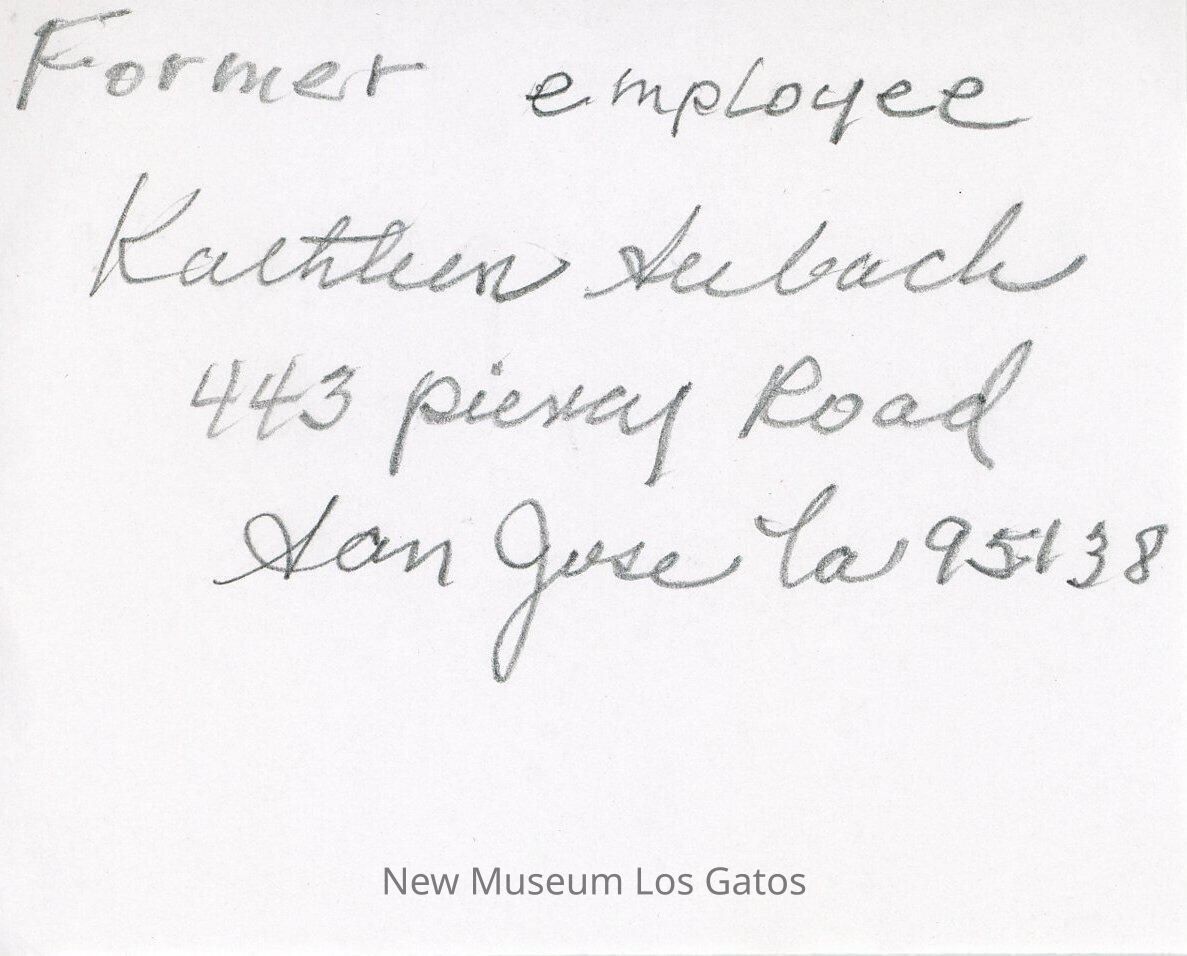 Former employee
Kathleen Seibach
443 piercy Road
San Jose Ca 95138
New Museum Los Gatos